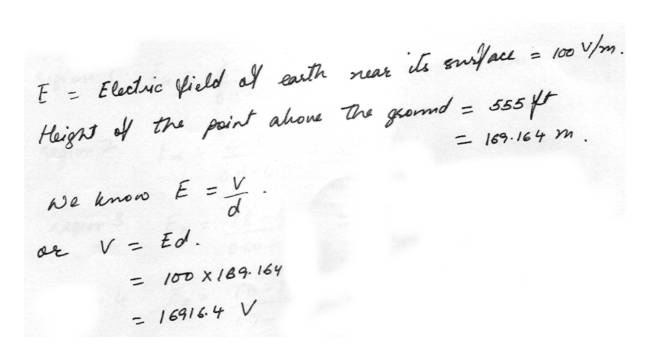 E = Electric field of earth near its surface = 100 V/m.
Height of the point above The ground = 555 ft
= 169.164 m.
We know E = V/d.
or V = Ed.
= 100 X 169.164
= 16916.4 V